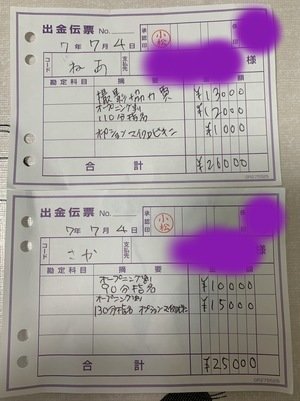 出金伝票 No.
承認印 小松 係印
7年7月4日
コード ねあ 支払先 様
勘定科目 摘要 金額
撮影協力費 ¥13000
オープニング割
110分指名 ¥12000
オプション ¥1000
合計 ¥26000
出金伝票 No.
承認印 小松
7年7月4日
コード さか 支払先 様
勘定科目 摘要
オープニング割
90分指名 ¥10000
オープニング割
130分指名 オプション ¥15000
合計 ¥25000